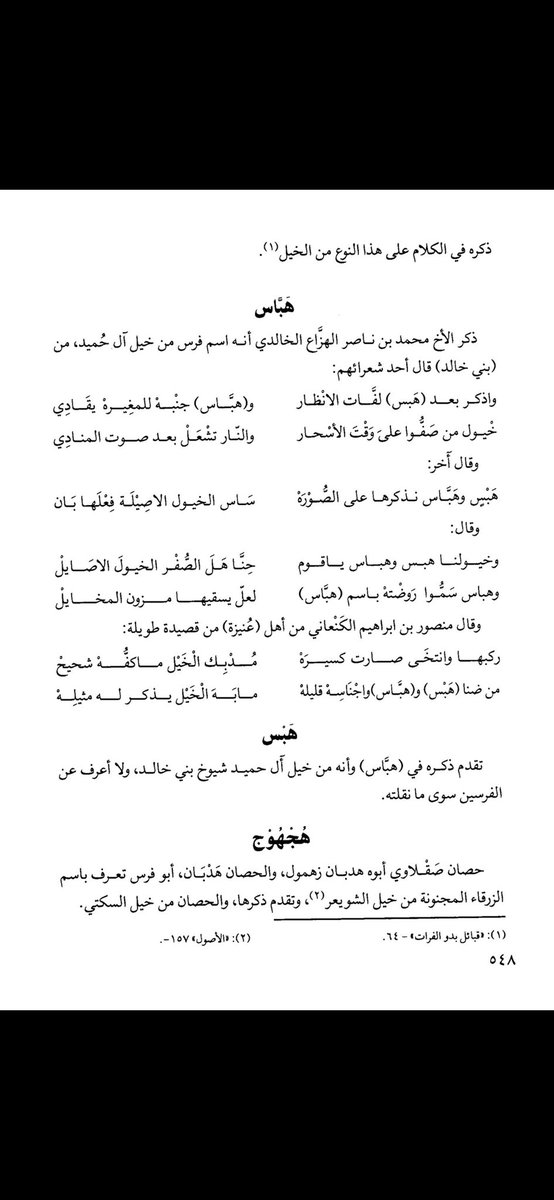 ذكره في الكلام على هذا النوع من الخيل(١).
هَبَّاس
ذكر الأخ محمد بن ناصر الهزَّاع الخالدي أنه اسم فرس من خيل آل حُميد، من
(بني خالد) قال أحد شعرائهم:
واذكر بعد (هَبس) لفَّات الانْظار و(هبَّاس) جنْبهْ للمغِيرهْ يقَادِي
خْيول من صَفُّوا علىَ وَقْتَ الأسْحار والنّار تشْعَلْ بعد صوت المنادِي
وقال آخر:
هَبْسٍ وهَبَّاس نذكرها على الصُّوْرَهْ سَاس الخيول الاصِيْلَة فِعْلَها بَان
وقال:
وخيولنا هبس وهباس ياقوم حِنَّا هَلَ الصُّفْر الخيولَ الاصَايلْ
وهباس سَمُّوا رَوضْتهْ باسم (هبَّاس) لعلّ يسقيها مزون المخايلْ
وقال منصور بن ابراهيم الكَنْعاني من أهل (عُنيزة) من قصيدة طويلة:
ركبها وانتخَى صارت كسيرَهْ مُدْبِك الْخَيْل ماكفُّهْ شحيحْ
من ضنا (هَبْس) و(هبَّاس)واجْنَاسِهْ قليلهْ مابَهَ الْخَيْل يذكر له مثيلِهْ
هَبْس
تقدم ذكره في (هبَّاس) وأنه من خيل آل حميد شيوخ بني خالد، ولا أعرف عن
الفرسين سوى ما نقلته.
هُجْهُوْج
حصان صَقْلاوي أبوه هدبان زهمول، والحصان هَدْبَان، أبو فرس تعرف باسم
الزرقاء المجنونة من خيل الشويعر(٢)، وتقدم ذكرها، والحصان من خيل السكتي.
(١): «قبائل بدو الفرات» - ٦٤. (٢): «الأصول» ١٥٧-.
٥٤٨